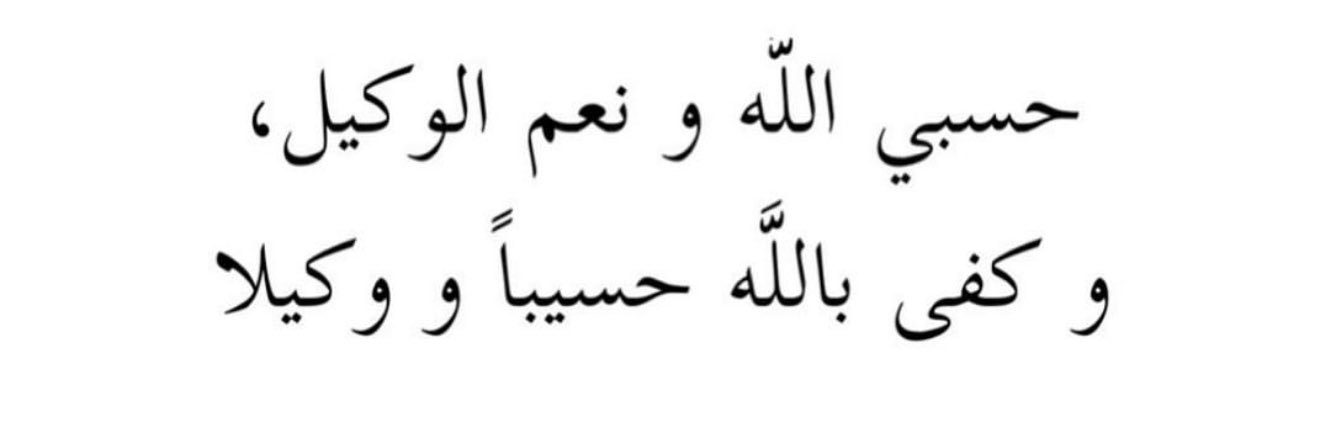 حسبي اللّه و نعم الوكيل،
و كفى باللَّه حسيباً و وكيلا